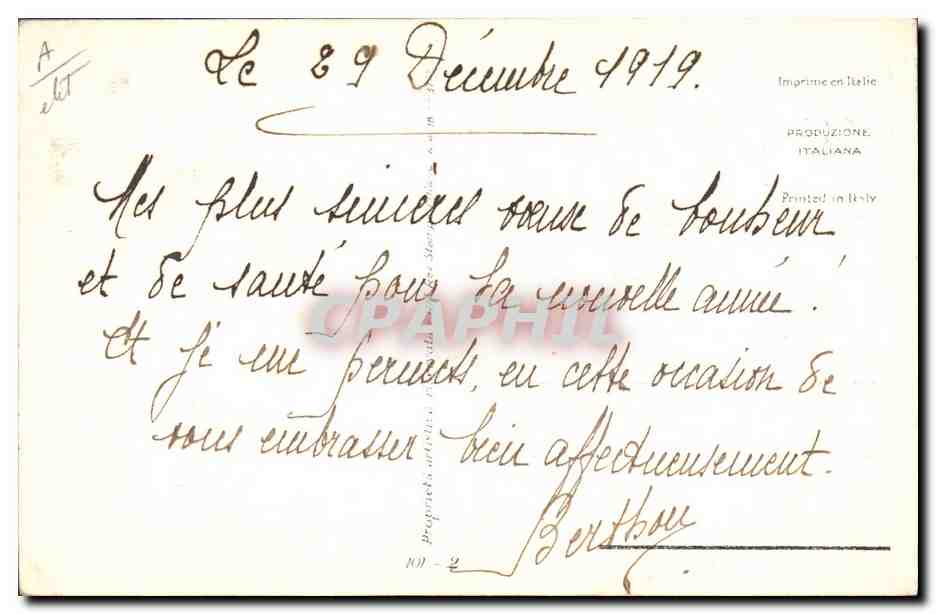 A
Le 29 Décembre 1919.
Imprimé en Italie
PRODUZIONE
ITALIANA
Printed in Italy
Mes plus sincères voeux de bonheur
et de santé pour la nouvelle année !
Et je me permets, en cette occasion de
vous embrasser bien affectueusement.
Berthou
CPAPHIL
Proprietà artistica
101 - 2